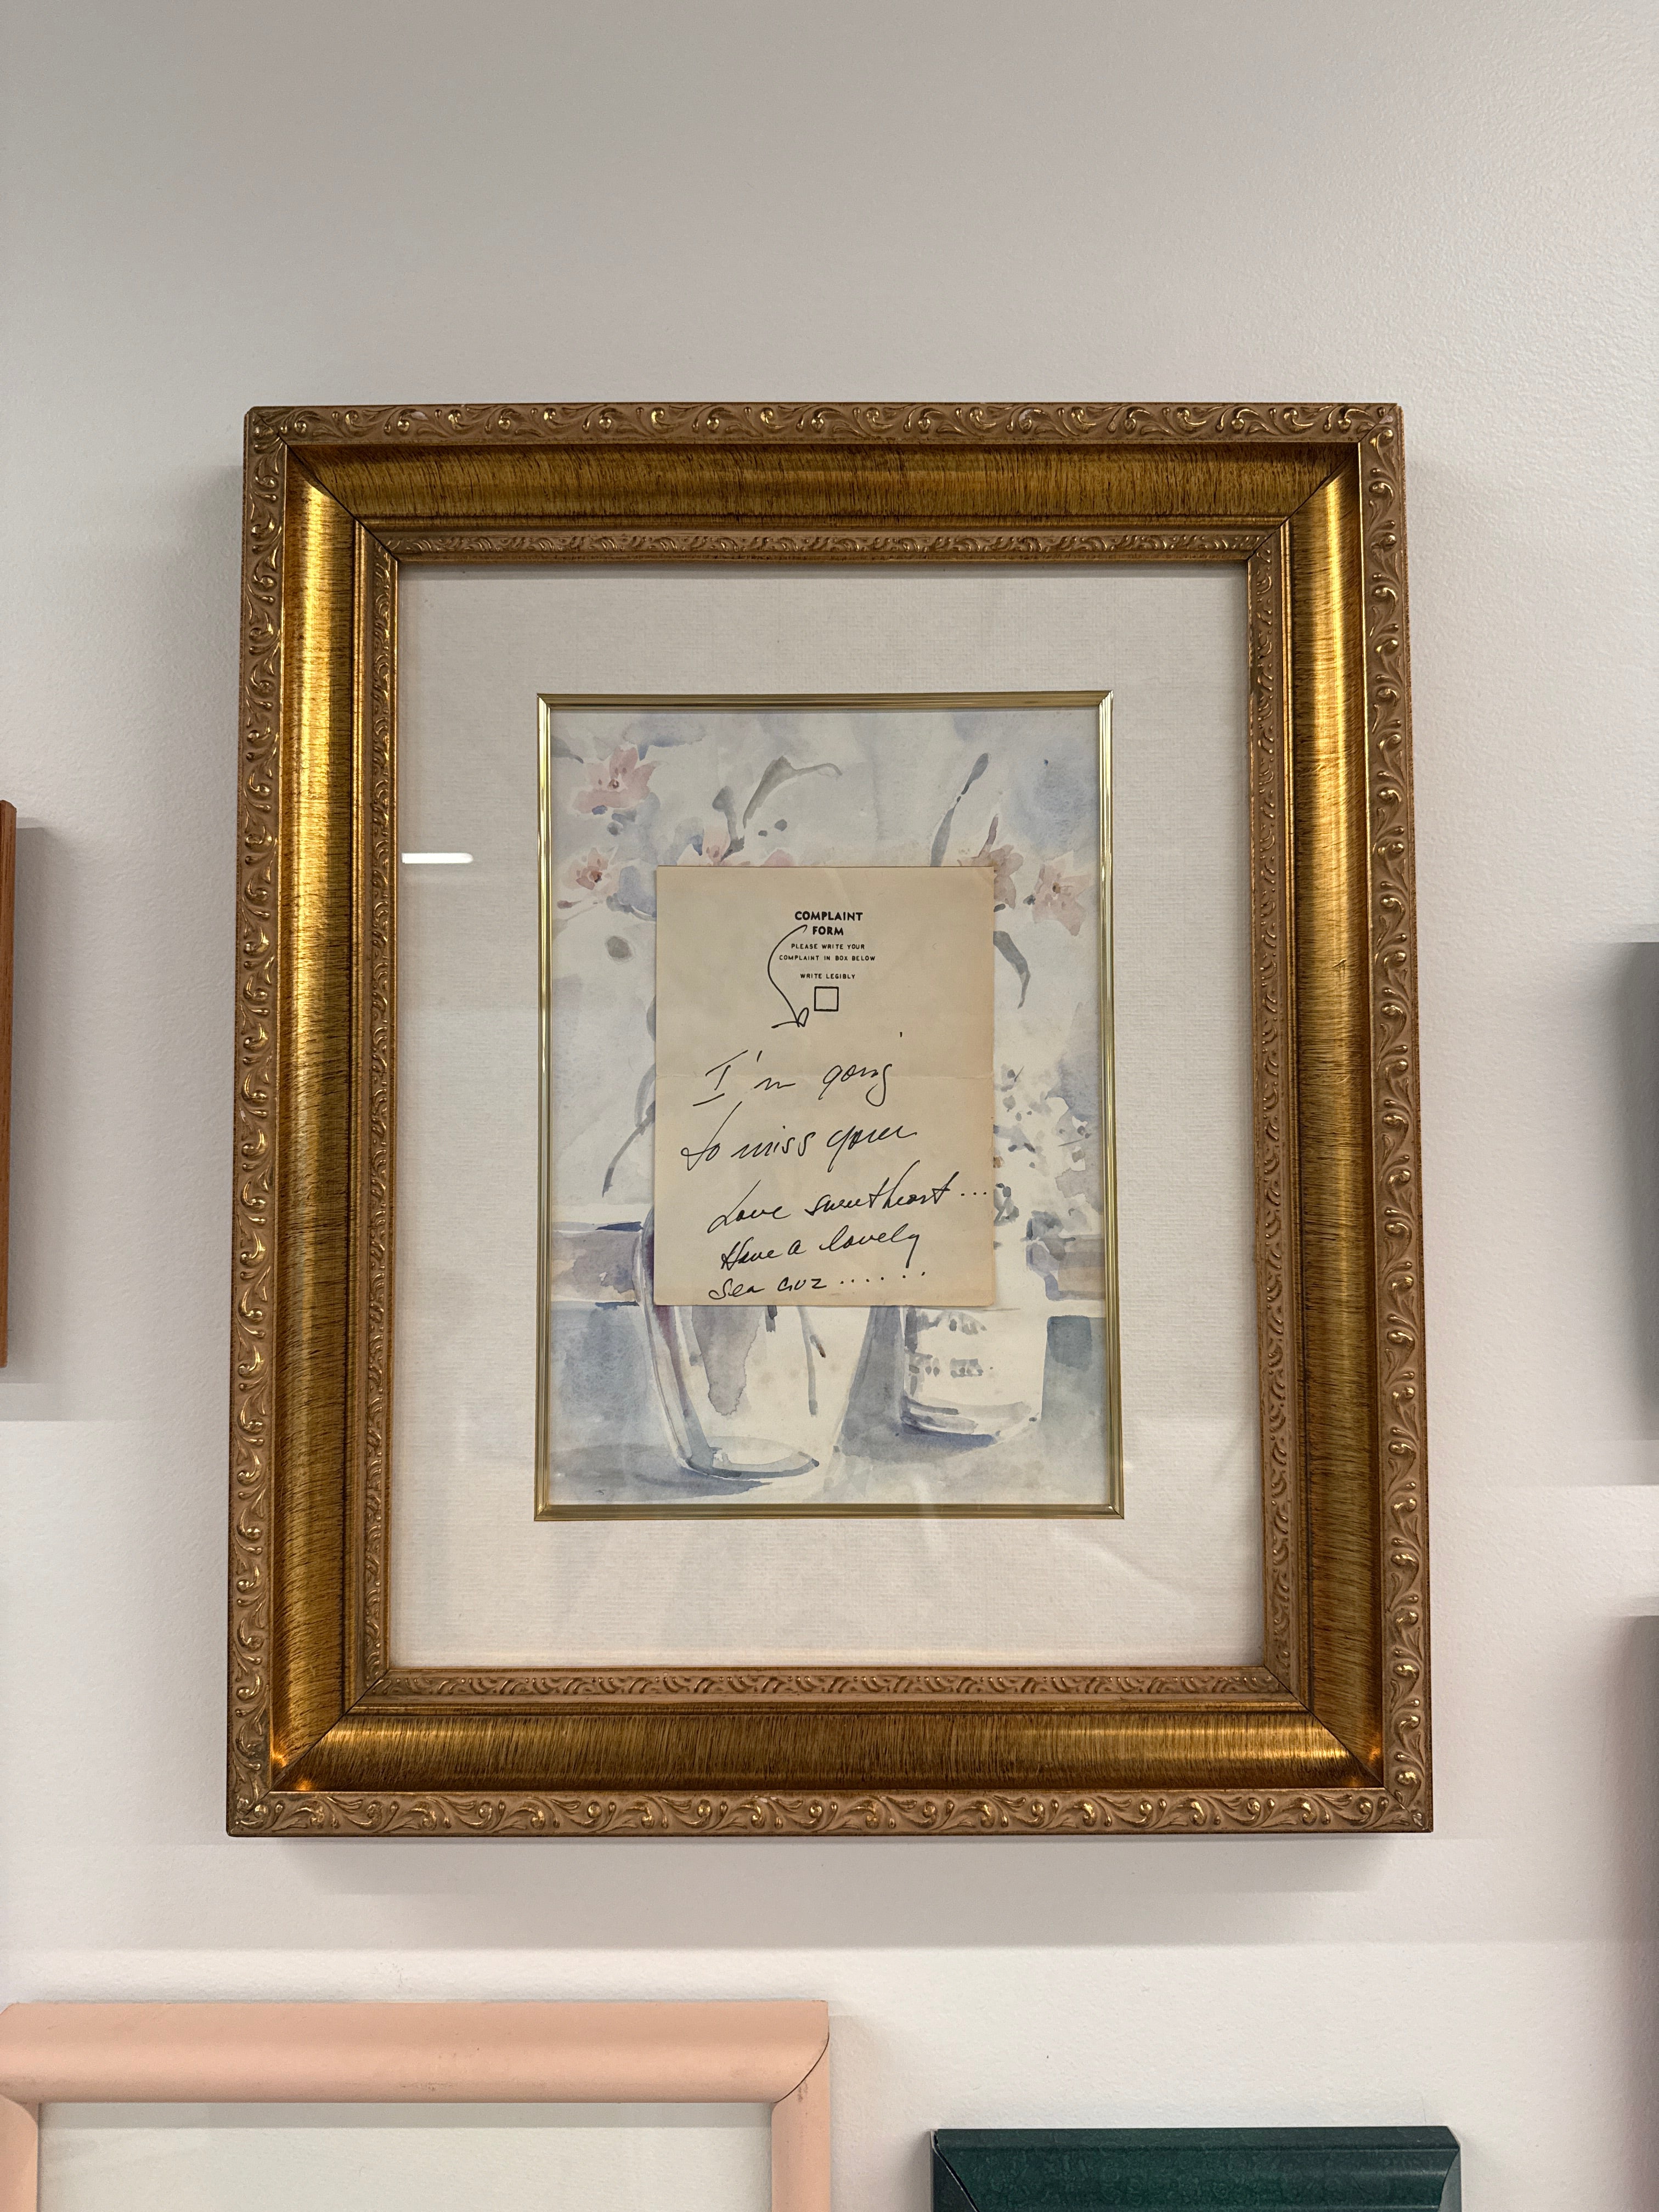 COMPLAINT
FORM
PLEASE WRITE YOUR
COMPLAINT IN BOX BELOW
WRITE LEGIBLY
I'm going
to miss your
Love sweetheart...
Have a lovely
Sea